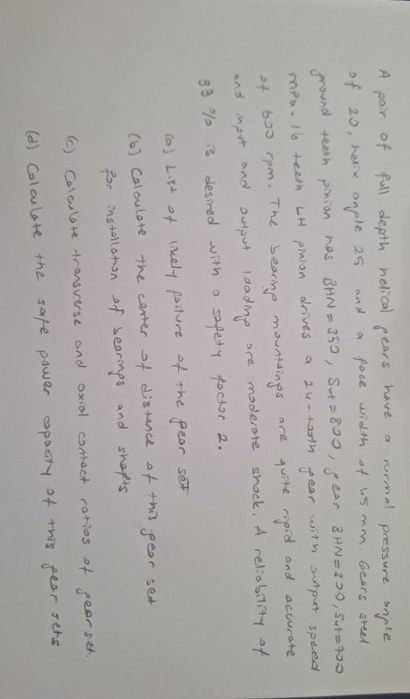 A pair of full depth helical gears have a normal pressure angle
of 20, helix angle 25 and a face width of 45 mm. Gears steel
ground teeth pinion has BHN=350, Sut=800, gear BHN=330, Sut=700
mpa. 16 teeth LH pinion drives a 24-tooth gear with output speed
of 600 rpm. The bearing mountings are quite rigid and accurate
and input and output loading are moderate shock. A reliability of
99 % is desired with a safety factor 2.
(a) List of likely failure of the gear set
(b) Calculate the center of distance of this gear set
for installation of bearings and shafts
(c) Calculate transverse and axial contact ratios of gear set.
(d) Calculate the safe power capacity of this gear sets